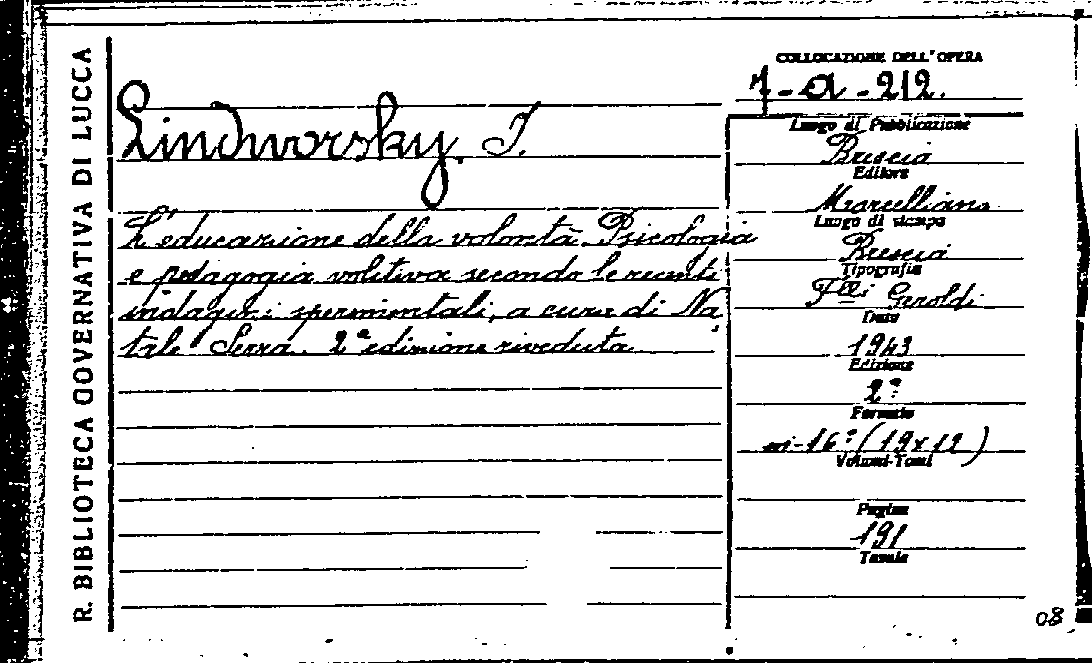 R. BIBLIOTECA GOVERNATIVA DI LUCCA
Lindworsky, I.
L'educazione della volontà. Psicologia
e pedagogia volitiva secondo le recenti
indagini sperimentali, a cura di Na
tale Serra. 2ª edizione riveduta
COLLOCAZIONE DELL'OPERA
7-a-212.
Luogo di Pubblicazione
Brescia
Editore
Morcelliana
Luogo di stampa
Brescia
Tipografia
F.lli Geroldi
Data
1943
Edizione
2ª
Formato
in-16° (19x12)
Volumi-Tomi
Pagine
191
Tavole
08